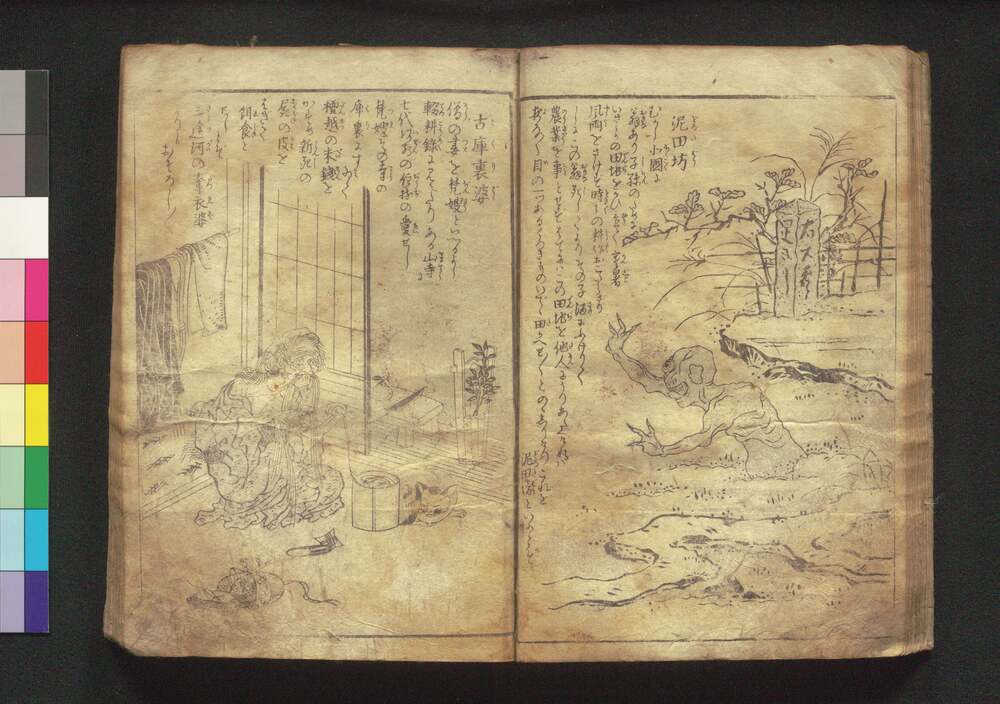 泥田坊
むかし北国に
翁あり子孫のために
いさゝかの田地をかひ置て寒暑
風雨をさけず時々の耕作おこたらざり
しにこの翁死してよりその子酒にふけりて
農業を事とせずはてにはこの田地を他人にうりあたへければ
夜な〱目の一つあるくろきものいでゝ田かへせ〱とのゝしりけりこれを
泥田坊といふとぞ
古庫裏婆
僧の妻を梵嫂といへるよし
輟耕録に見えたりある山寺に
七代以前の住持の愛せし
梵嫂その寺の
庫裏にすみゐて
檀越の米銭を
かすめ新死の
屍の皮を
はぎて
餌食と
せしとぞ
三途河の奪衣婆
よりも
おそろし〱